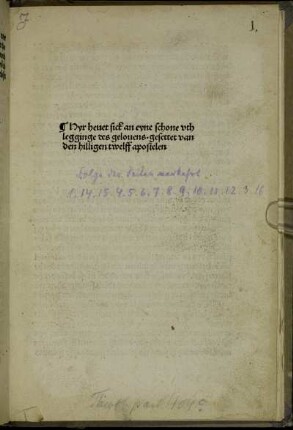 1.
¶ Hyr hevet sick an eyne schone vth
legginge des gelovens gesettet van
den hilligen twelff apostelen
Folge der Seiten
1. 14. 15. 4. 5. 6. 7. 8. 9. 10. 11. 12. 3. 16